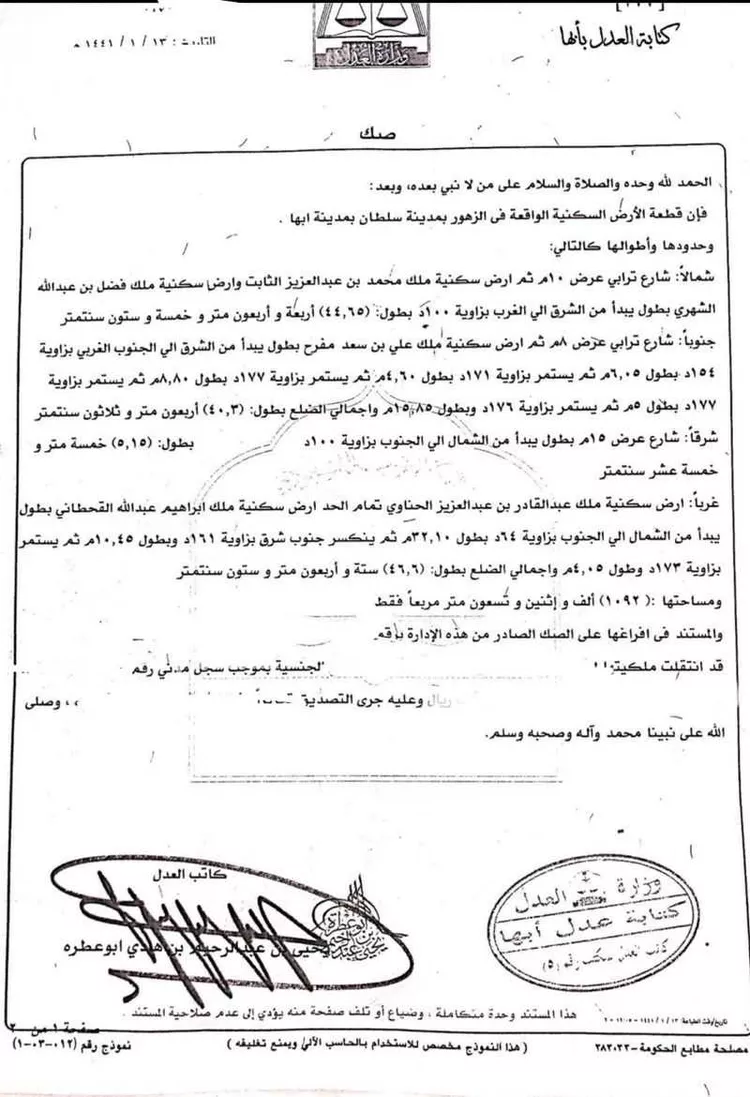 [١١١]
كتابة العدل بأبها
التاريخ : ١٣ / ١ / ١٤٤١ هـ
وزارة العدل
صك
الحمد لله وحده والصلاة والسلام على من لا نبي بعده، وبعد:
فإن قطعة الأرض السكنية الواقعة فى الزهور بمدينة سلطان بمدينة ابها .
وحدودها وأطوالها كالتالي:
شمالاً: شارع ترابي عرض ١٠م ثم ارض سكنية ملك محمد بن عبدالعزيز الثابت وارض سكنية ملك فضل بن عبدالله
الشهري بطول يبدأ من الشرق الي الغرب بزاوية ١٠٠د بطول: (٤٤,٦٥) أربعة و أربعون متر و خمسة و ستون سنتمتر
جنوباً: شارع ترابي عرض ٨م ثم ارض سكنية ملك علي بن سعد مفرح بطول يبدأ من الشرق الي الجنوب الغربي بزاوية
١٥٤د بطول ٦,٠٥م ثم يستمر بزاوية ١٧١د بطول ٤,٦٠م ثم يستمر بزاوية ١٧٧د بطول ٨,٨٠م ثم يستمر بزاوية
١٧٧د بطول ٥م ثم يستمر بزاوية ١٧٦د وبطول ١٥,٨٥م واجمالي الضلع بطول: (٤٠,٣) أربعون متر و ثلاثون سنتمتر
شرقاً: شارع عرض ١٥م بطول يبدأ من الشمال الي الجنوب بزاوية ١٠٠د بطول: (٥,١٥) خمسة متر و
خمسة عشر سنتمتر
غرباً: ارض سكنية ملك عبدالقادر بن عبدالعزيز الحناوي تمام الحد ارض سكنية ملك ابراهيم عبدالله القحطاني بطول
يبدأ من الشمال الي الجنوب بزاوية ٦٤د بطول ٣٢,١٠م ثم ينكسر جنوب شرق بزاوية ١٦١د وبطول ١٠,٤٥م ثم يستمر
بزاوية ١٧٣د وطول ٤,٠٥م واجمالي الضلع بطول: (٤٦,٦) ستة و أربعون متر و ستون سنتمتر
ومساحتها :( ١٠٩٢) ألف و إثنين و تسعون متر مربعاً فقط
والمستند فى افراغها على الصك الصادر من هذه الإدارة برقم
قد انتقلت ملكيتها الجنسية بموجب سجل مدني رقم
ريال وعليه جرى التصديق ، وصلى
الله على نبينا محمد وآله وصحبه وسلم.
كاتب العدل
يحيى بن عبدالرحيم بن هادي ابوعطره
وزارة العدل
كتابة عدل أبها
كاتب العدل مكتب رقم (٥)
هذا المستند وحدة متكاملة ، وضياع أو تلف صفحة منه يؤدي إلى عدم صلاحية المستند .
صفحة ١ من ٢
مصلحة مطابع الحكومة - ٢٨٣٠٢٣
( هذا النموذج مخصص للاستخدام بالحاسب الآلي ويمنع تغليفه )
نموذج رقم (١٢-٠٣-٠١)